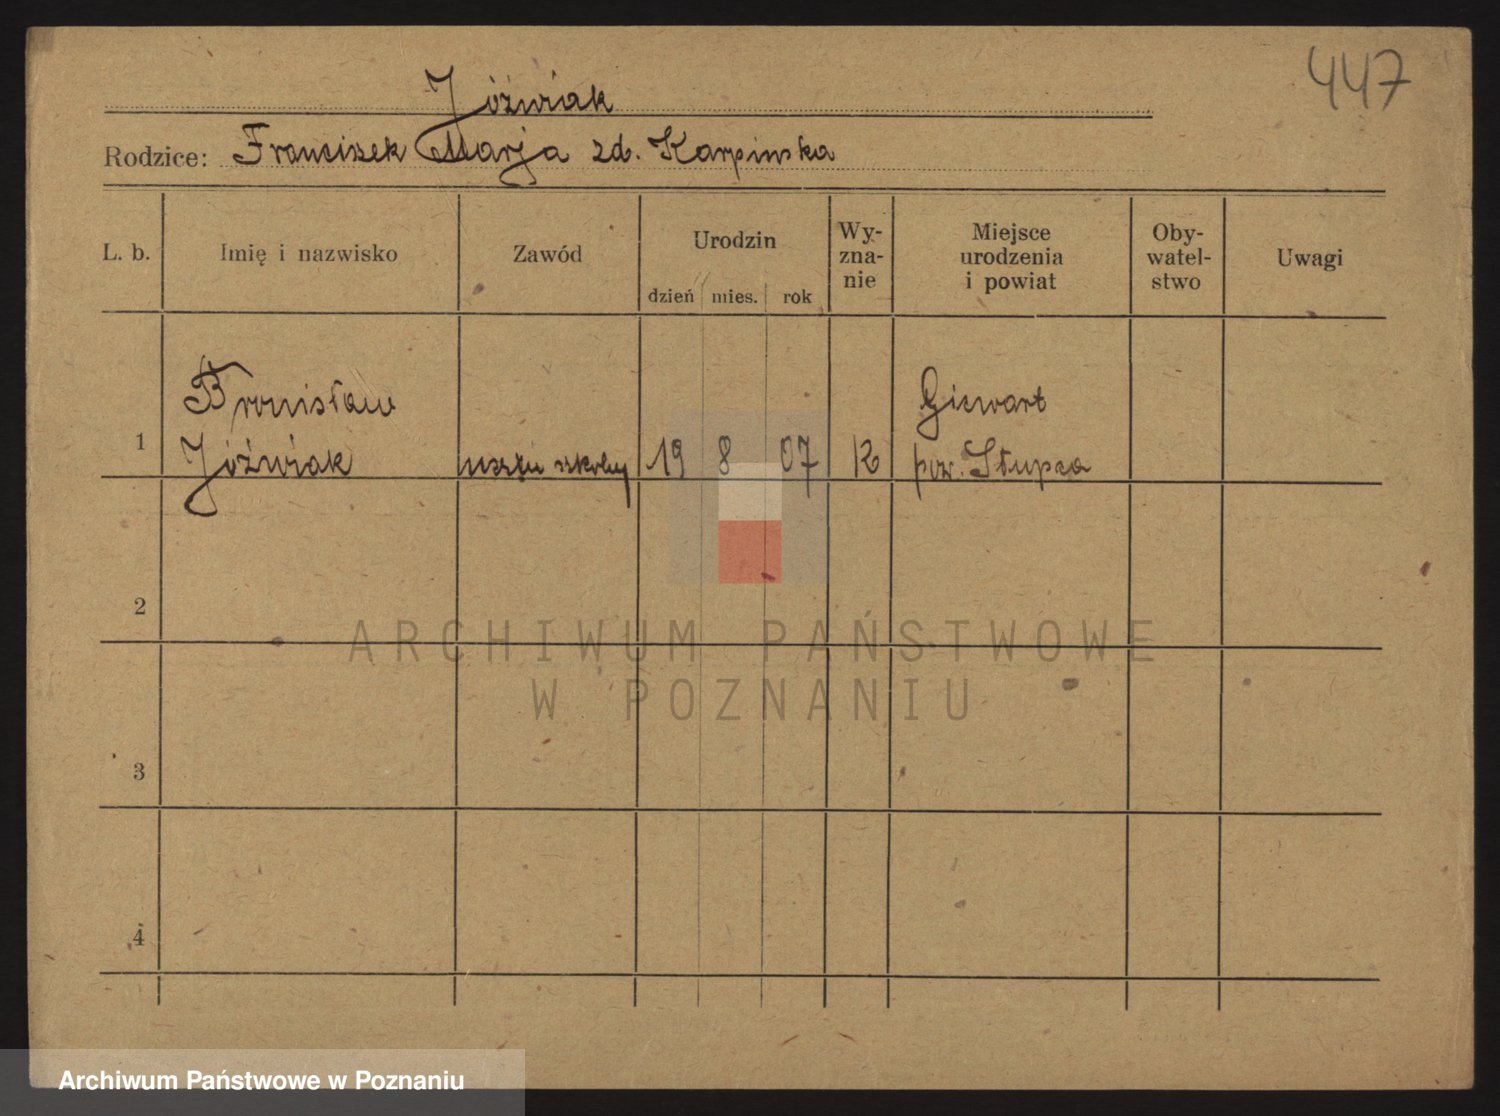 447
Jóźwiak
Rodzice: Franciszek Marja zd. Karpinska
L. b.
Imię i nazwisko
Zawód
Urodzin
dzień mies. rok
Wy-
zna-
nie
Miejsce
urodzenia
i powiat
Oby-
watel-
stwo
Uwagi
1
Bronisław
Jóźwiak
szkolny
19 8 07
R
Giewart
pow. Słupca
2
3
4
ARCHIWUM PAŃSTWOWE
W POZNANIU
Archiwum Państwowe w Poznaniu